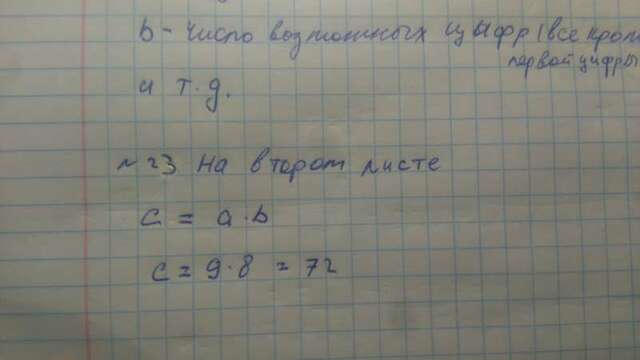 b - число возможных цифр (все кроме
первой цифры
и т.д.
№23 на втором листе
c = a·b
c = 9·8 = 72